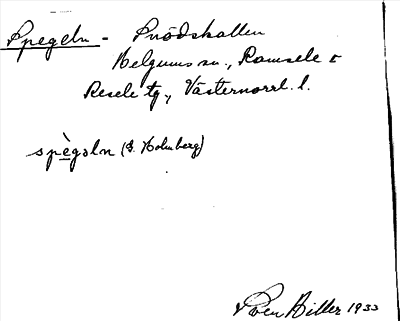 Spegeln - Prödskallen
Helgums sn., Ramsele o
Resele tg., Västernorrl. l.
spègəln (S. Holmberg)
Sven Hiller 1933